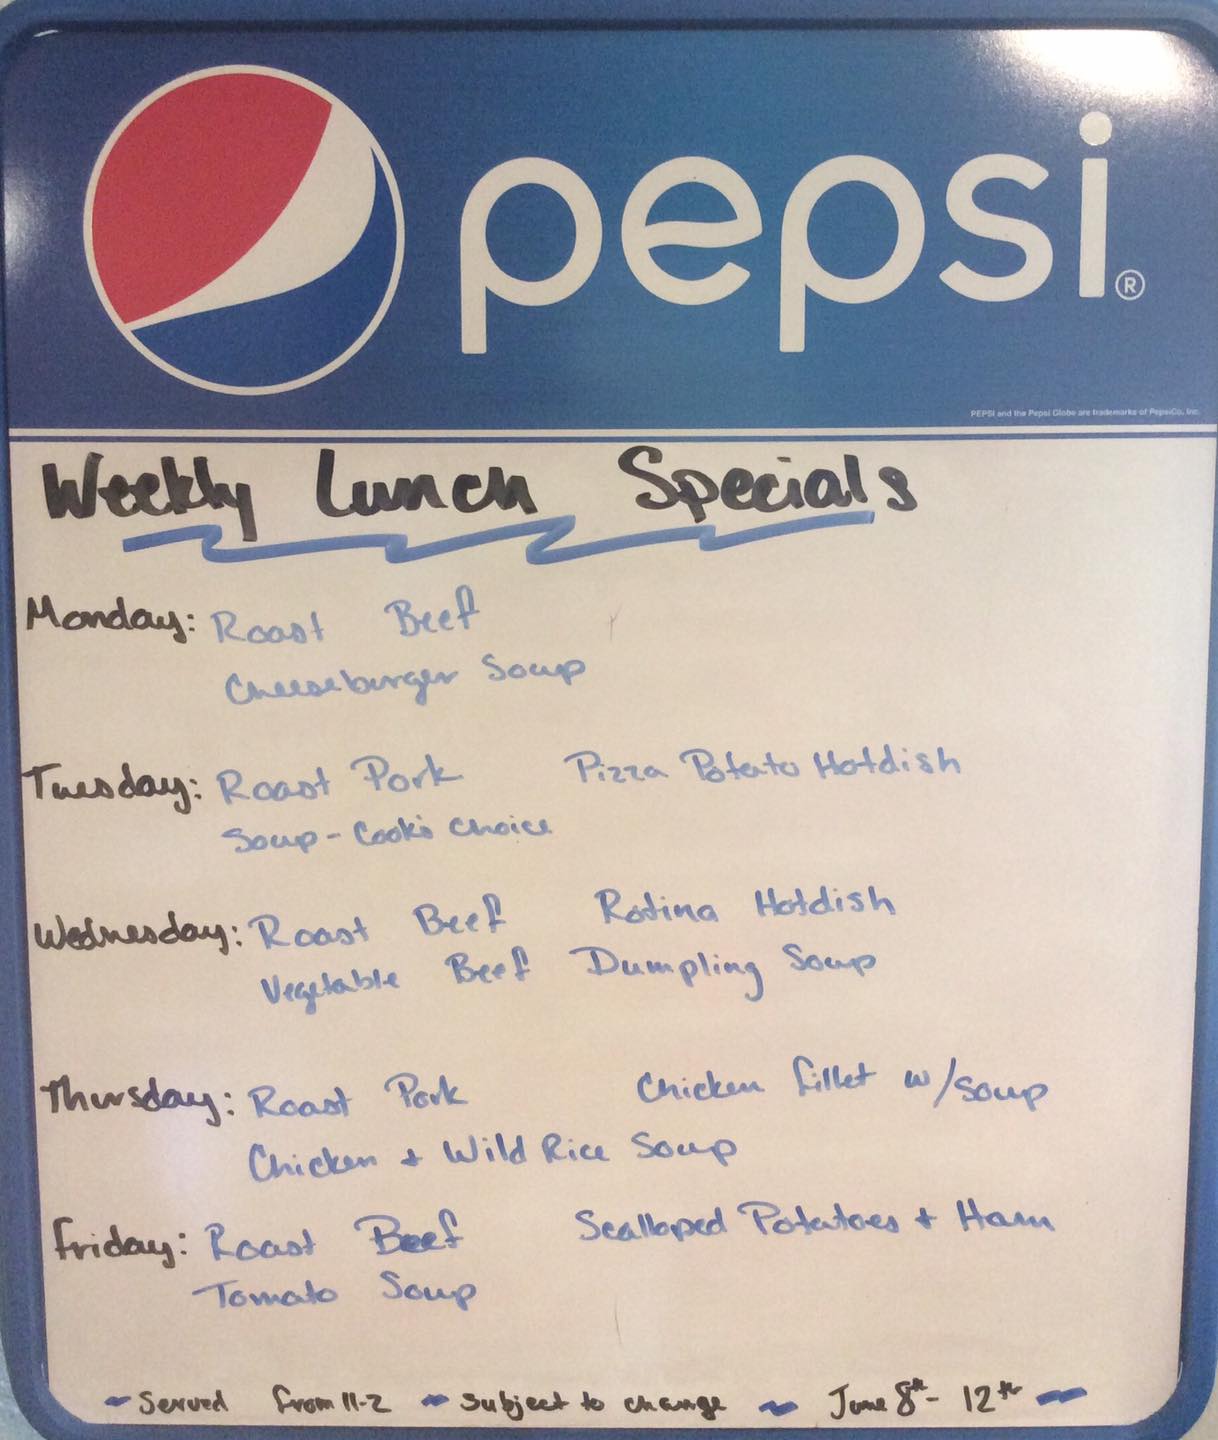 pepsi®
PEPSI and the Pepsi Globe are trademarks of PepsiCo, Inc.
Weekly Lunch Specials
Monday: Roast Beef
Cheeseburger Soup
Tuesday: Roast Pork Pizza Potato Hotdish
Soup - Cook's Choice
Wednesday: Roast Beef Rotina Hotdish
Vegetable Beef Dumpling Soup
Thursday: Roast Pork Chicken fillet w/soup
Chicken + Wild Rice Soup
Friday: Roast Beef Scalloped Potatoes + Ham
Tomato Soup
~ Served from 11-2 ~ subject to change ~ June 8th - 12th ~